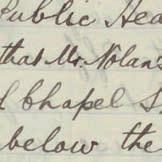 Public Hea
that Mr. Nolan's
Chapel S
below the